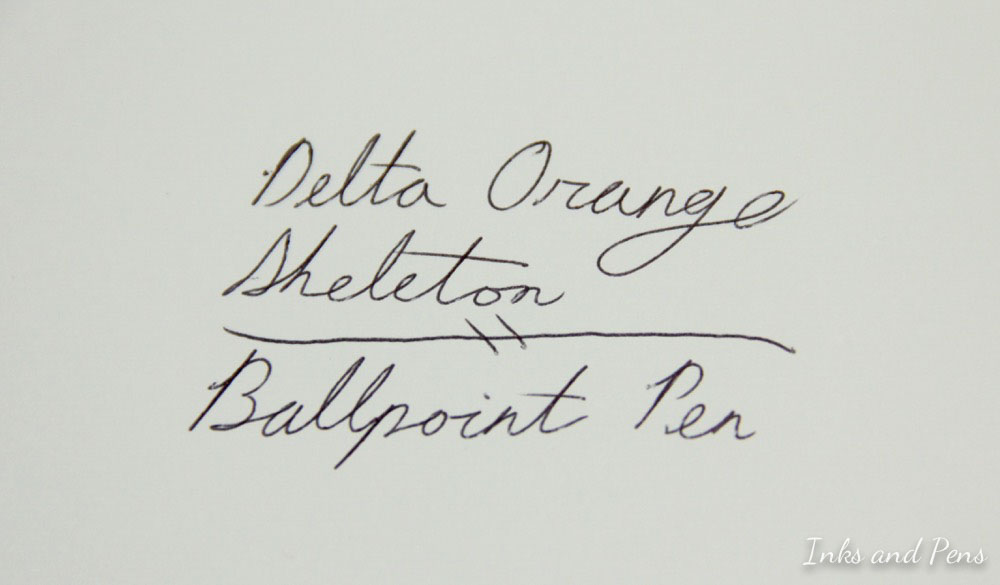 Delta Orange
Skeleton
Ballpoint Pen
Inks and Pens